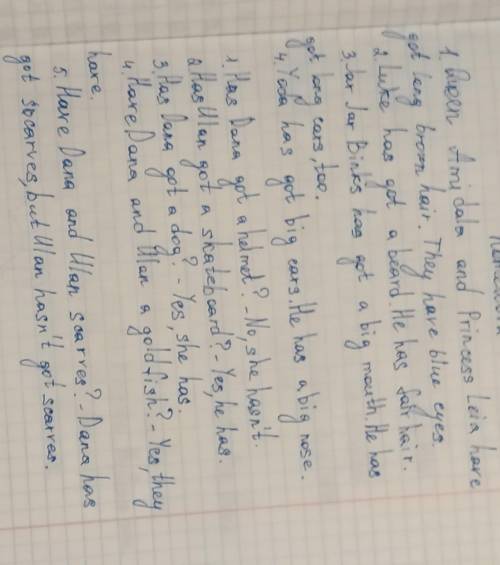 Homework
1. Queen Amidala and Princess Leia have
got long brown hair. They have blue eyes.
2. Luke has got a beard. He has fair hair.
3. Jar Jar Binks has got a big mouth. He has
got long ears, too.
4. Yoda has got big ears. He has a big nose.
1. Has Dana got a helmet? - No, she hasn't.
2. Has Ulan got a skateboard? - Yes, he has.
3. Has Dana got a dog? - Yes, she has.
4. Have Dana and Ulan a goldfish? - Yes, they
have.
5. Have Dana and Ulan scarves? - Dana has
got scarves, but Ulan hasn't got scarves.